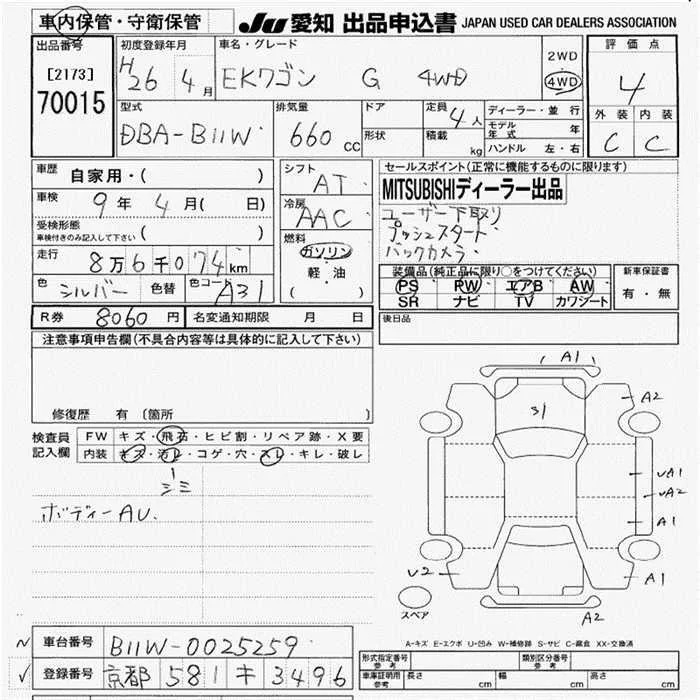 車内保管・守衛保管
JU 愛知 出品申込書 JAPAN USED CAR DEALERS ASSOCIATION
出品番号
[2173]
70015
初度登録年月
H26 4月
車名・グレード
EKワゴン G 4WD
2WD
4WD
評価点
4
外装 内装
C C
型式
DBA-B11W
排気量
660 cc
ドア
形状
定員 4人
積載 kg
ディーラー・並行
モデル年式 年
ハンドル 左・右
車歴 自家用・( )
車検 9年 4月( 日)
受検形態
車検付きのみ記入して下さい ( )
走行 8万6千074km
色 シルバー 色替 色コード A31
シフト AT
冷房 AAC
燃料
ガソリン
軽・油
( )
セールスポイント(正常に機能するものに限ります)
MITSUBISHIディーラー出品
ユーザー下取り
プッシュスタート
バックカメラ
装備品(純正品に限り○をつけてください)
PS PW エアB AW
SR ナビ TV カワシート
新車保証書
有・無
R券 8060円 名変通知期限 月 日
後日品
注意事項申告欄(不具合内容等は具体的に記入して下さい)
修復歴 有 〔箇所 〕
検査員記入欄
FW キズ・飛石・ヒビ割・リペア跡・X要
内装 キズ・汚レ・コゲ・穴・スレ・キレ・破レ
シミ
ボディーAU.
A1
A2
31
UA1
UA2
A1
U2
A1
スペア
A2
A-キズ E-エクボ U-凹み W-補修跡 S-サビ C-腐食 XX-交換済
車台番号 B11W-0025259
登録番号 京都 581 キ 3496
形式指定番号 参考
類別区分番号 参考
車庫証明用 参考 長さ cm 幅 cm 高さ cm